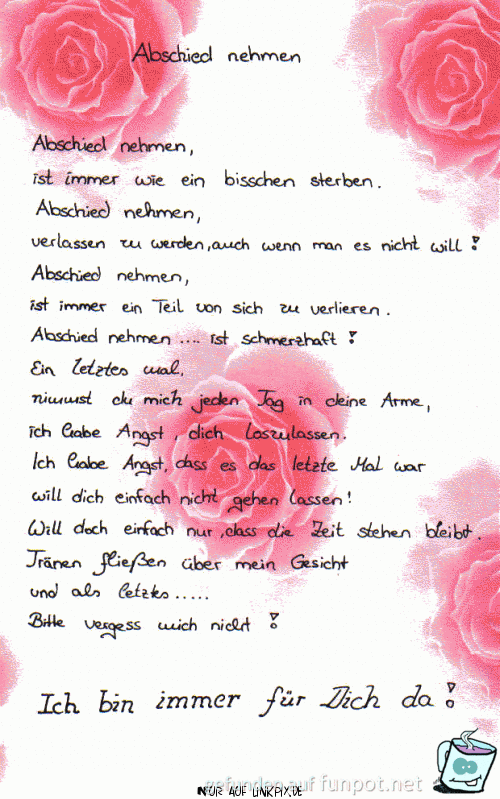 Abschied nehmen
Abschied nehmen,
ist immer wie ein bisschen sterben.
Abschied nehmen,
verlassen zu werden, auch wenn man es nicht will!
Abschied nehmen,
ist immer ein Teil von sich zu verlieren.
Abschied nehmen .... ist schmerzhaft!
Ein letztes mal,
nimmst du mich jeden Tag in deine Arme,
ich habe Angst, dich loszulassen.
Ich habe Angst, dass es das letzte Mal war
will dich einfach nicht gehen lassen!
Will doch einfach nur, dass die Zeit stehen bleibt.
Tränen fließen über mein Gesicht
und als letztes .....
Bitte vergess mich nicht!
Ich bin immer für Dich da!
gefunden auf funpot.net
NUR AUF LINKPIX.DE